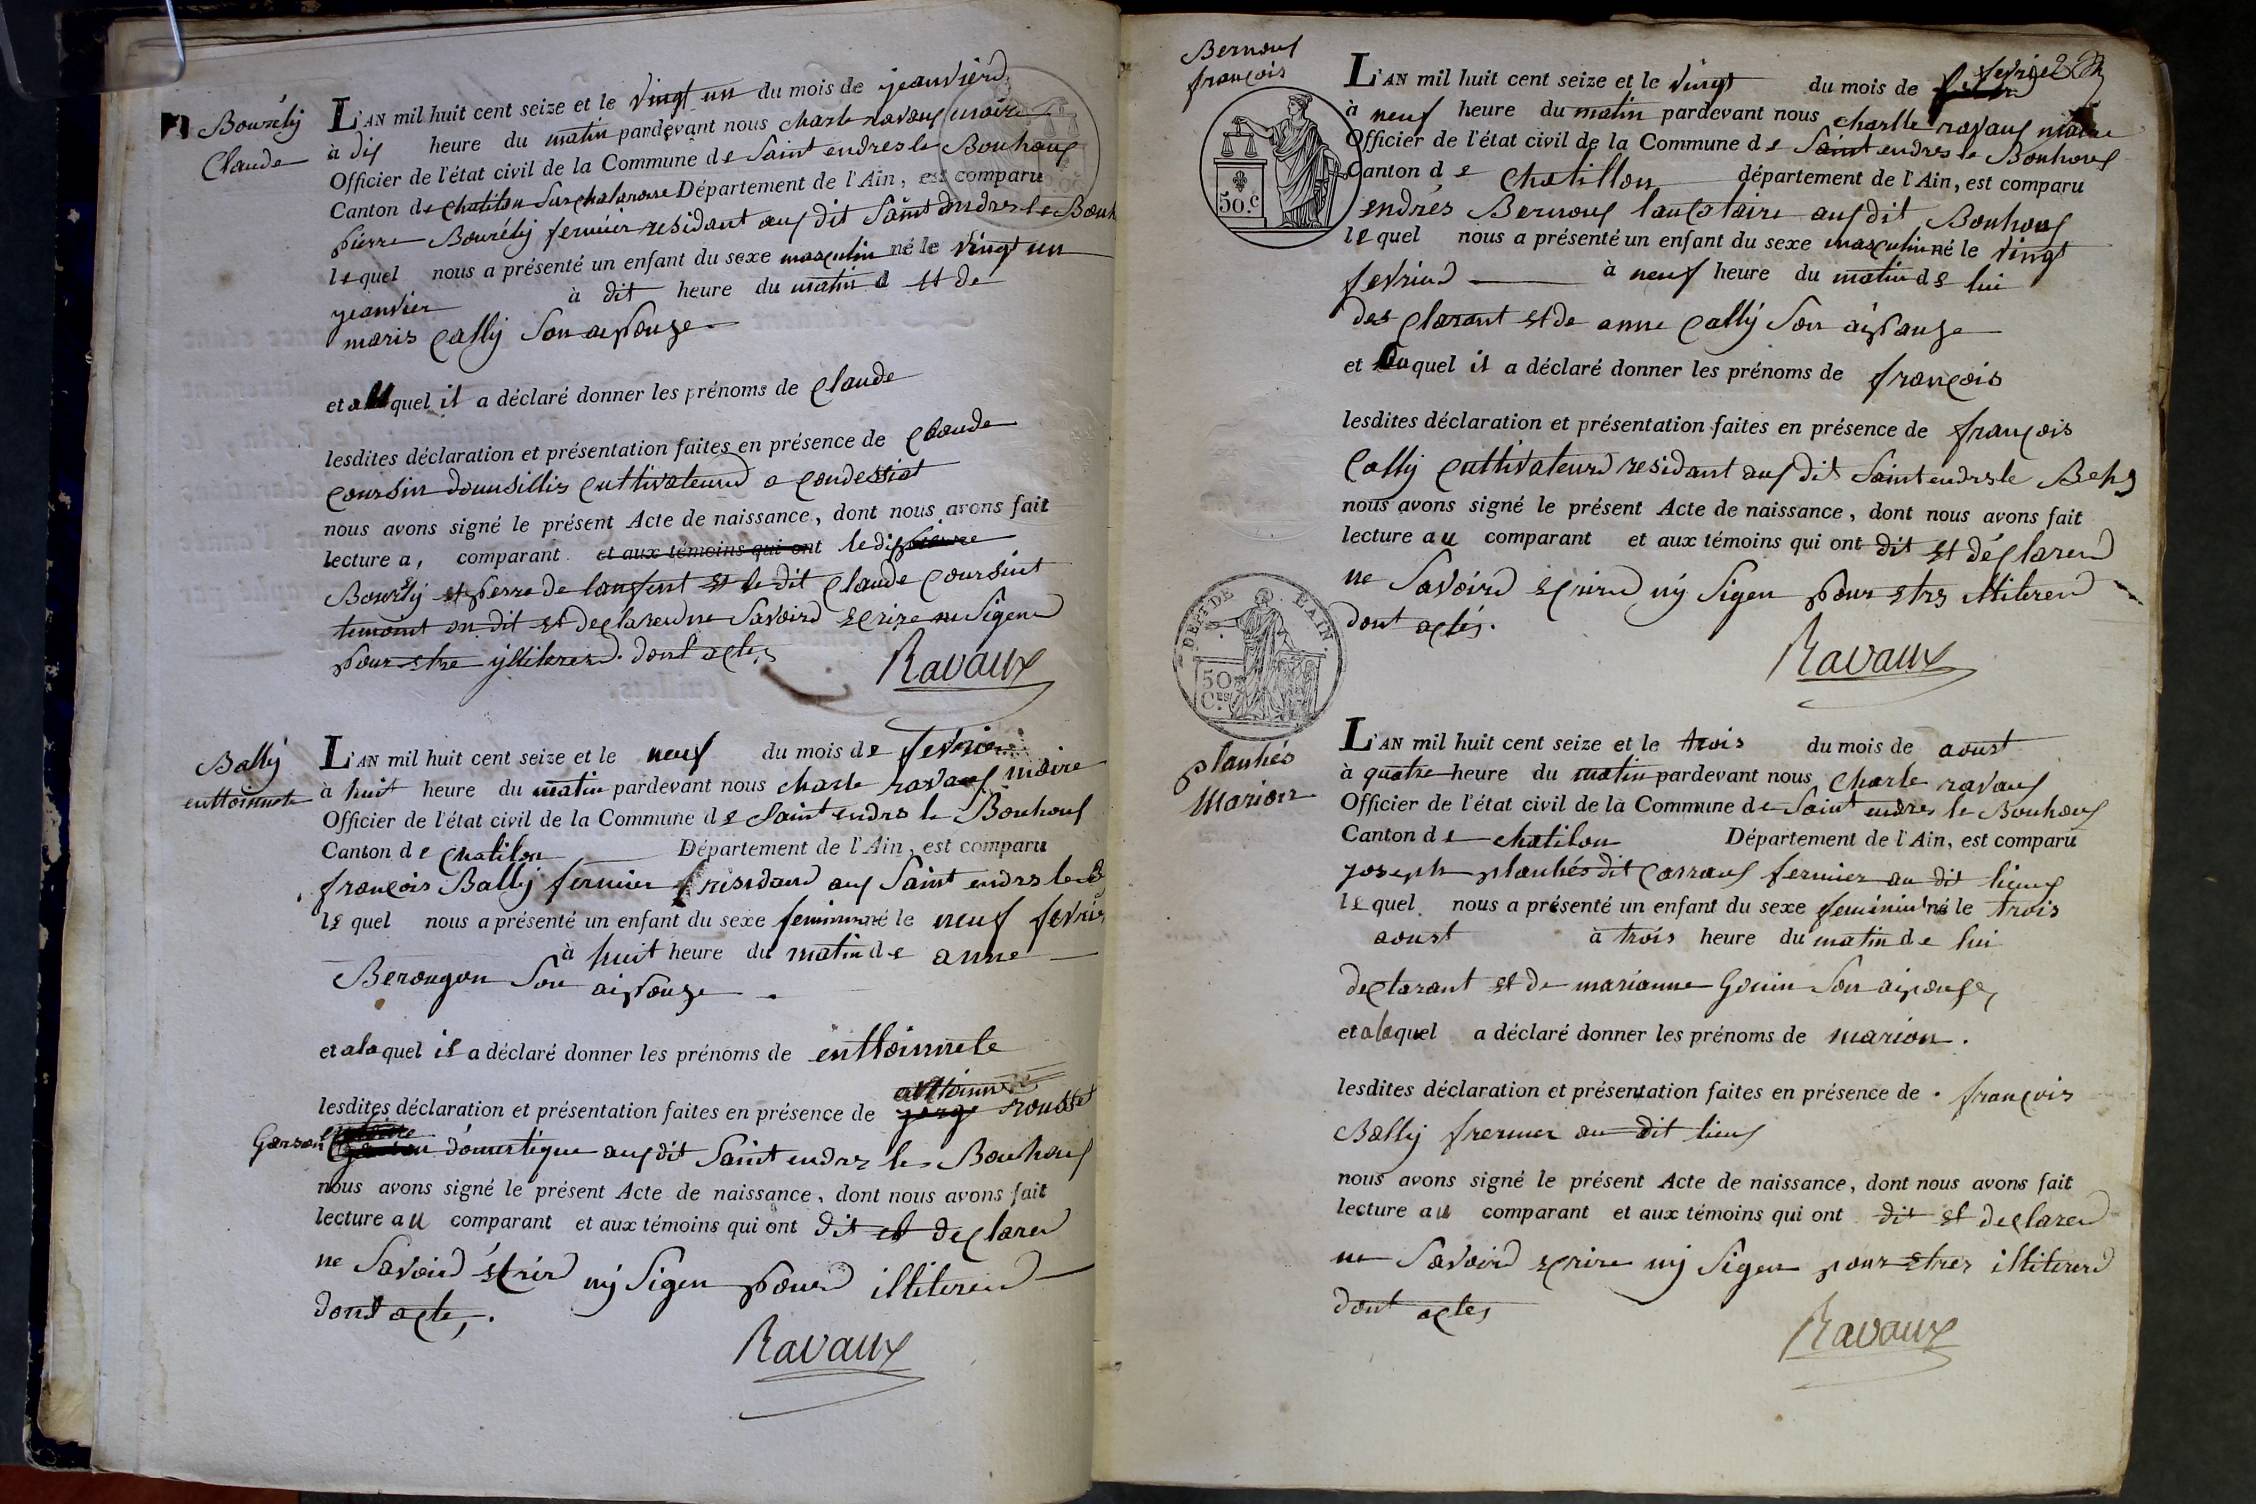 Bourély
Claude
L'AN mil huit cent seize et le vingt un du mois de jeanvierd
à dix heure du matin pardevant nous charle ravaux maire
Officier de l'état civil de la Commune de Saint endres le Bouhoux
Canton de Chatilon Sur chalaronne Département de l'Ain, est comparu
pierre Bourély fermier residant aux dit Saint endres le Bouh
le quel nous a présenté un enfant du sexe masculin né le vingt un
jeanvier à dit heure du matin d et de
maris Cally Son aepouze
et au quel il a déclaré donner les prénoms de Claude
lesdites déclaration et présentation faites en présence de Claude
Coursin domisillis Cultivateurd a Condessiat
nous avons signé le présent Acte de naissance, dont nous avons fait
lecture a, comparant et aux témoins qui ont ledis
Bourély perre de lanfent et le dit Claude Coursint
temoint on dit et declarend ne Savoird ecrire ni Sigend
pour etre ylliterend dont acte,
Ravaux
Bally
enttoinnete
L'AN mil huit cent seize et le neuf du mois de fevrier
à huit heure du matin pardevant nous charle ravaux maire
Officier de l'état civil de la Commune de Saint endres le Bouhoux
Canton de Chatilon Département de l'Ain, est comparu
françois Bally fermier residand aux Saint endres le B
le quel nous a présenté un enfant du sexe feminin né le neuf fevrier
à huit heure du matin de anne
Berougon Son aipouze.
et a la quel il a déclaré donner les prénoms de enttoinnete
anttoinne
lesdites déclaration et présentation faites en présence de jorge rousset
Garson domestique aux dit Saint endres le Bouhoux
nous avons signé le présent Acte de naissance, dont nous avons fait
lecture au comparant et aux témoins qui ont dit et declarer
ne Savoird ecrird ny Sigen pourd illiterend
dont acte,.
Ravaux
Bernoux
françois
2
L'AN mil huit cent seize et le vingt du mois de fevrie
à neuf heure du matin pardevant nous charlle ravaux maire
Officier de l'état civil de la Commune de Saint endres le Bouhoux
Canton de Chatillon département de l'Ain, est comparu
endrés Bernoux laucataire aux dit Bouhoux
le quel nous a présenté un enfant du sexe masculin né le vingt
fevrierd à neuf heure du matin de lui
des Clarant et de anne Cally Son aipauze
et auquel il a déclaré donner les prénoms de françois
lesdites déclaration et présentation faites en présence de françois
Cally Cultivateurd residant aux dit Saint endres le
nous avons signé le présent Acte de naissance, dont nous avons fait
lecture au comparant et aux témoins qui ont dit et déclarend
ne Savoird ecrire ny Sigen pour etres illiterend
dont actes.
Ravaux
50.c
DEP.T DE L'AIN
50
C.ES
planhés
Marion
L'AN mil huit cent seize et le trois du mois de aoust
à quatre heure du matin pardevant nous Charle ravaux
Officier de l'état civil de la Commune de Saint endres le Bouhoux
Canton de chatilon Département de l'Ain, est comparu
joseph planhés dit Carraux fermier au dit lieux
le quel nous a présenté un enfant du sexe feminin né le trois
aoust à trois heure du matin de lui
declarant et de marianne Gonin Son aipouse,
et a laquel a déclaré donner les prénoms de marion.
lesdites déclaration et présentation faites en présence de. françois
Bally frermier au dit lieux
nous avons signé le présent Acte de naissance, dont nous avons fait
lecture au comparant et aux témoins qui ont dit et declarend
ne Savoird ecrire ny Sigen pour etrer illiterend
dont actes
Ravaux